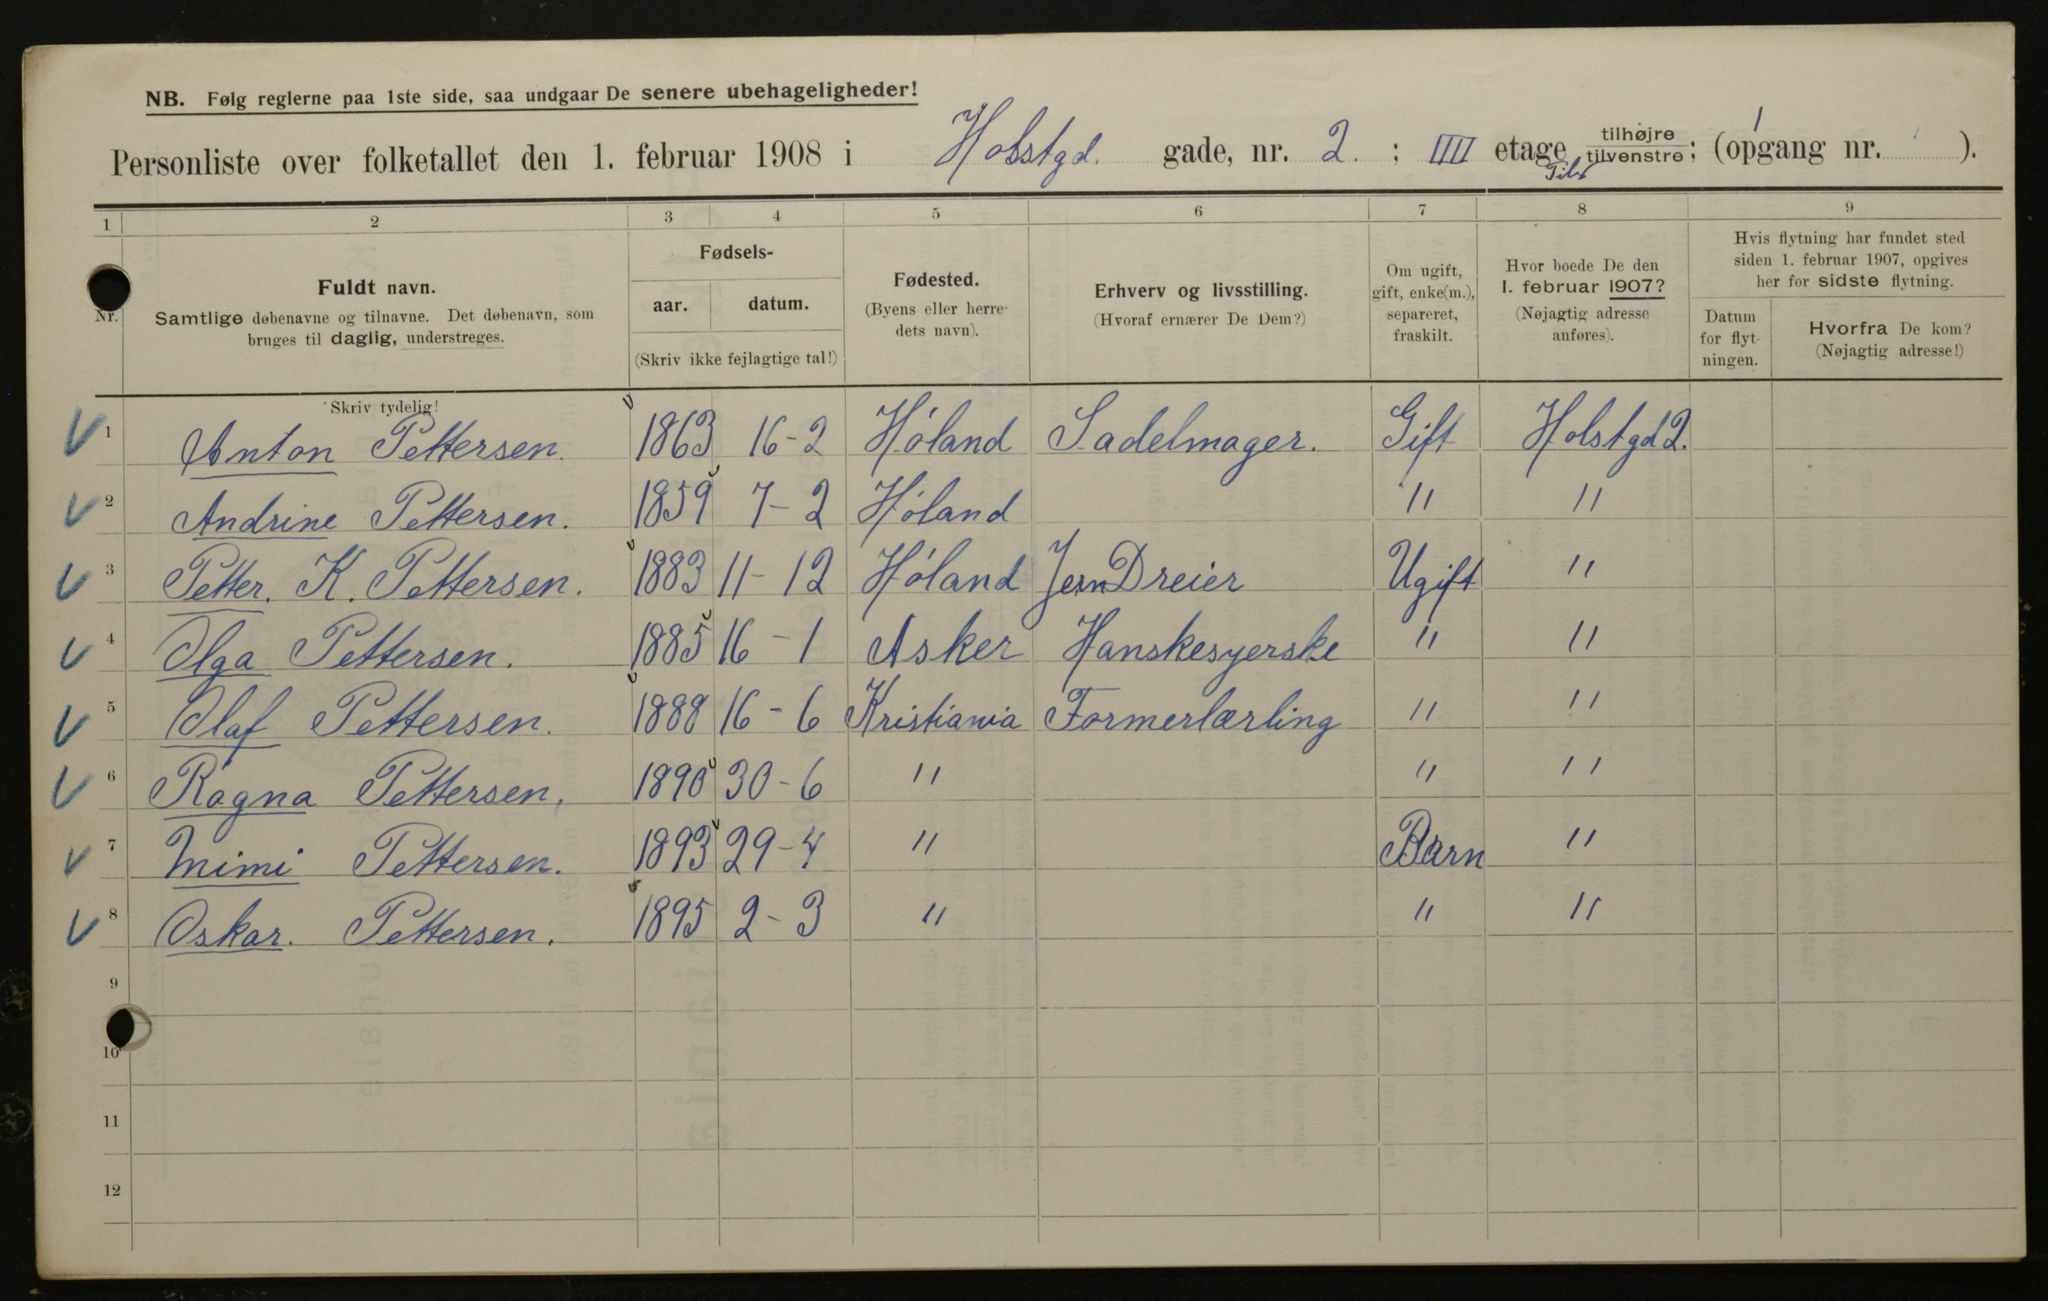 NB. Følg reglerne paa 1ste side, saa undgaar De senere ubehageligheder!
Personliste over folketallet den 1. februar 1908 i Holstgd. gade, nr. 2. ; IIII etage tilhøjre / tilvenstre; (opgang nr. ).
1 2 3 4 5 6 7 8 9
Nr.
Fuldt navn.
Samtlige døbenavne og tilnavne. Det døbenavn, som
bruges til daglig, understreges.
Skriv tydelig!
Fødsels-
aar. datum.
(Skriv ikke fejlagtige tal!)
Fødested.
(Byens eller herre-
dets navn).
Erhverv og livsstilling.
(Hvoraf ernærer De Dem?)
Om ugift,
gift, enke(m.),
separeret,
fraskilt.
Hvor boede De den
1. februar 1907?
(Nøjagtig adresse
anføres).
Hvis flytning har fundet sted
siden 1. februar 1907, opgives
her for sidste flytning.
Datum
for flyt-
ningen.
Hvorfra De kom?
(Nøjagtig adresse!)
1 Anton Pettersen. 1863 16-2 Høland Sadelmager. Gift Holstgd 2.
2 Andrine Pettersen. 1859 7-2 Høland " "
3 Petter. K. Pettersen. 1883 11-12 Høland Jern Dreier Ugift "
4 Olga Pettersen. 1885 16-1 Asker Hanskesyerske " "
5 Olaf Pettersen. 1888 16-6 Kristiania Formerlærling " "
6 Ragna Pettersen. 1890 30-6 " " "
7 Mimi Pettersen. 1893 29-4 " Barn "
8 Oskar. Pettersen. 1895 2-3 " " "
9
10
11
12